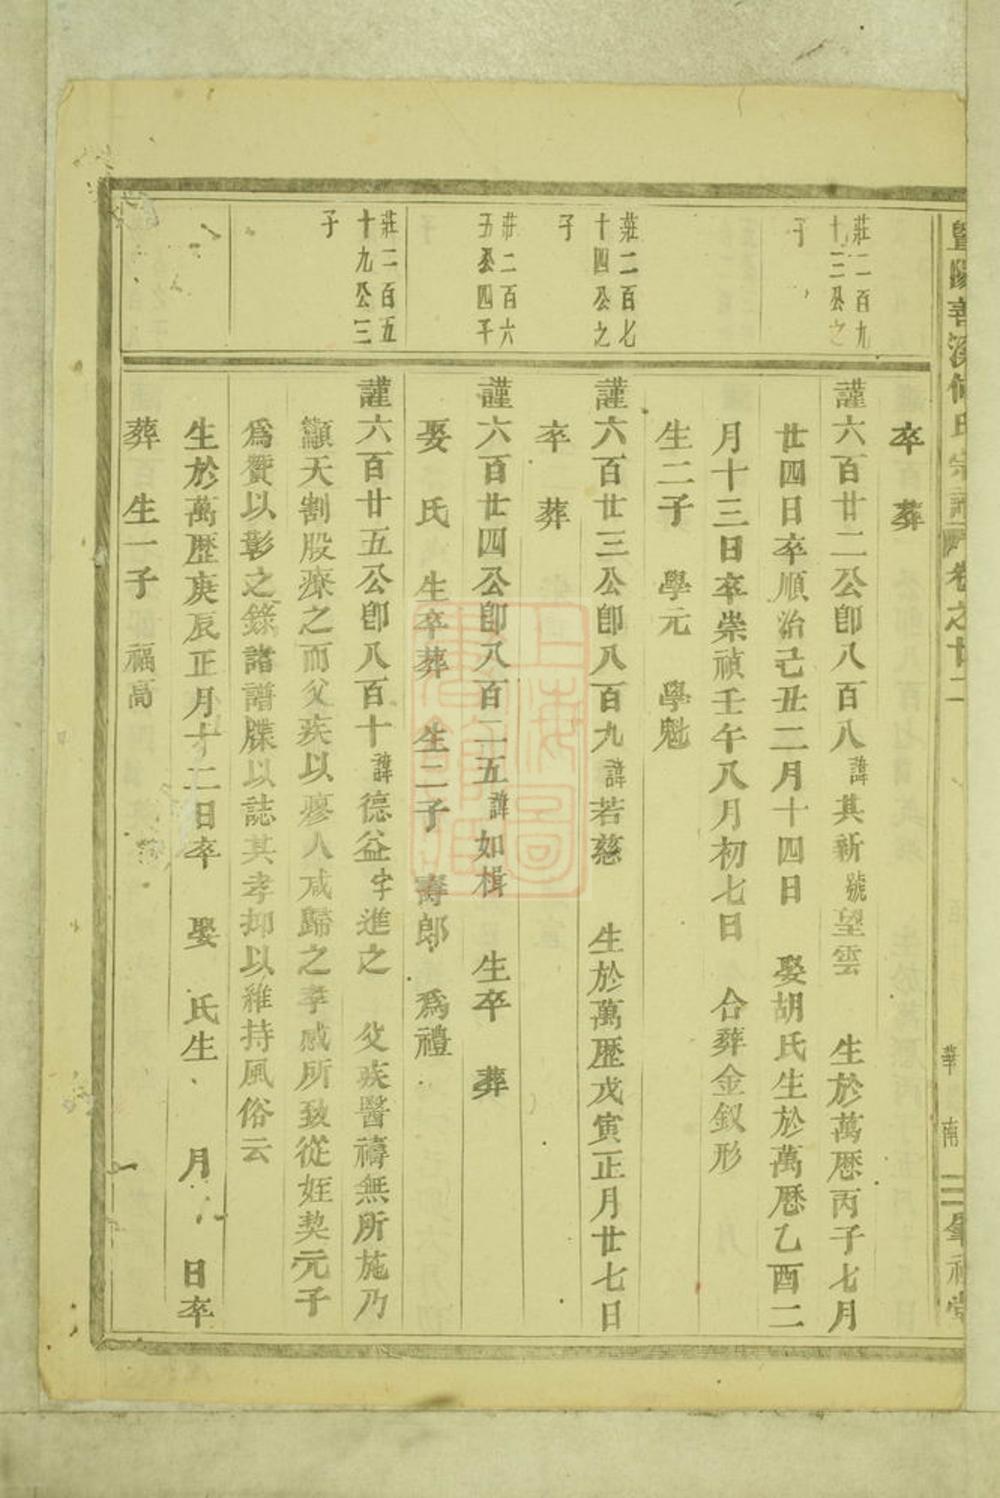 暨陽善溪何氏宗譜 卷之廿二
華南
卒 葬
莊二百九
十二公之
子
謹六百廿二公卽八百八諱其新號望雲 生於萬歷丙子七月
廿四日卒順治己丑二月十四日 娶胡氏生於萬歷乙酉二
月十三日卒崇禎壬午八月初七日 合葬金釵形
生二子 學元 學魁
莊二百七
十四公之
子
謹六百廿三公卽八百九諱若慈 生於萬歷戊寅正月廿七日
卒 葬
莊二百六
五公四子
謹六百廿四公卽八百二五諱如楫 生卒 葬
娶 氏 生卒葬 生二子 壽郎 爲禮
莊二百五
十九公三
子
謹六百廿五公卽八百十諱德益字進之 父疾醫禱無所施乃
籲天割股療之而父疾以瘳人咸歸之孝感所致從姪契元子
爲贊以彰之錄諸譜牒以誌其孝抑以維持風俗云
生於萬歷庚辰正月十二日卒 娶 氏生 月 日卒
葬 生一子 福高